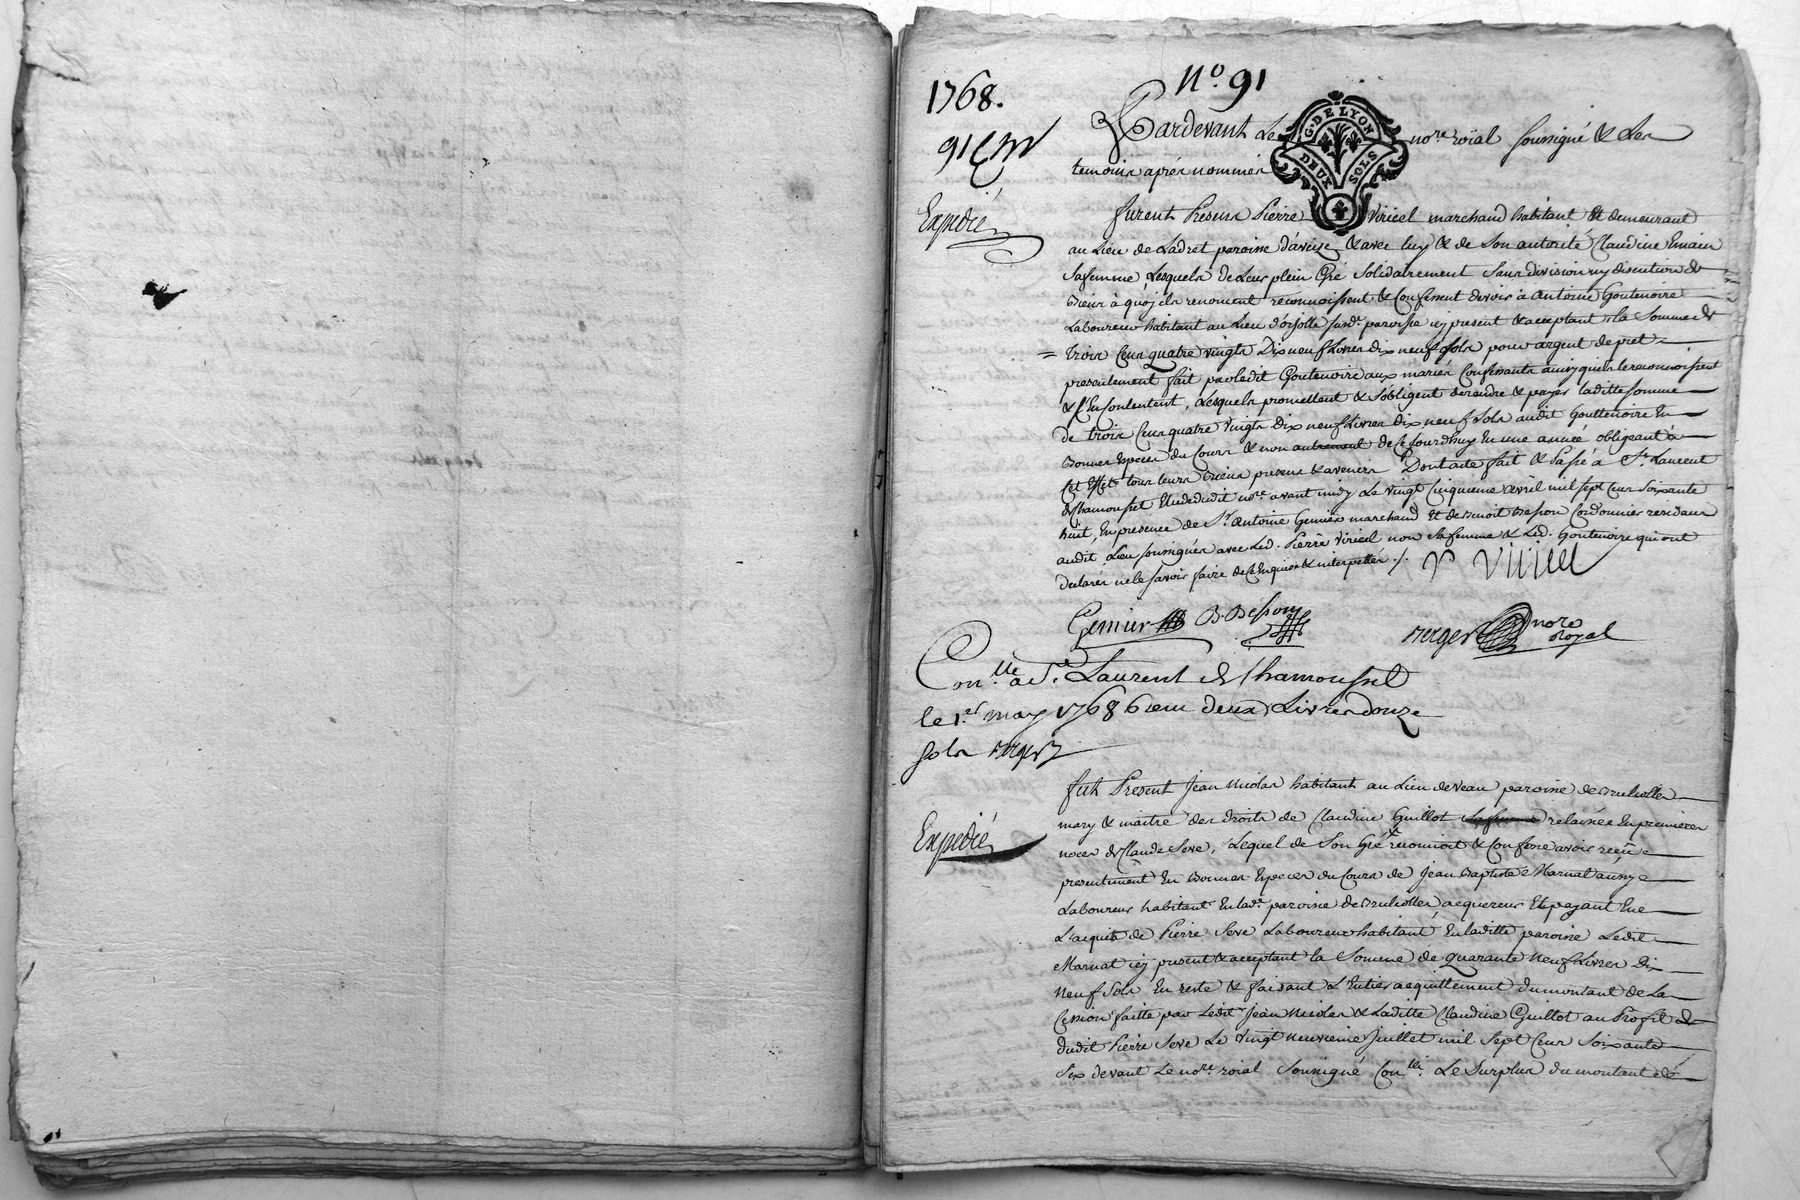 1768.
No. 91
91e
Expedié
Pardevant Le nore. roïal soussigné & Les
temoins aprés nommés
G. DE LYON
DEUX SOLS
furent Presens Pierre Viricel marchand habitant Et demeurant
au Lieu de Ladret paroisse d'aveize & avec luy & de Son autorité Claudine
Sa femme, Lesquels de Leur plein Gré Solidairement Sans division ny discution de
biens à quoy ils renoncent reconnoissent & Confessent devoir à Antoine Goutenoire
Laboureur habitant au Lieu susde. paroisse icy present & acceptant la Somme de
= trois Cens quatre vingts Dix neuf Livres dix neuf sols pour argent de pret
presentement fait par ledit Goutenoire aux mariés Confessants ainsy qu'ils le reconnoissent
& s'En Contentent, Lesquels promettent & s'obligent de rendre & payer laditte somme
de trois Cens quatre vingts dix neuf Livres dix neuf Sols audit Gouttenoire En
bonnes Espèces du Cours & non autrement de Ce Jourdhuy En une année obligeant à
Cet Effet tous leurs biens presens & avenirs Dont acte fait & Passé à St. Laurent
de Chamousset Etude dudit nore. avant midy Le vingt Cinquieme avril mil sept cens soixante
huit, En presence de Sr. Antoine Genier marchand Et de Benoit Besson Cordonnier residans
audit Lieu soussignés avec Led. Pierre Viricel non Sa femme & Led. Goutenoire qui ont
declarés ne le savoir faire de ce Enquis & interpellés ./.
P Viricel
Genier
B. Besson
Berger nore royal
Conlle. a St. Laurent de Chamousset
le 1er. may 1768 Recu deux Livres douze
Sols Berger
Expedié
fut Present Jean Nicolas habitant au Lieu deveau paroisse de Brulioles
mary & maitre des droits de Claudine Guillot relaissée En premieres
noces de Claude Seve, Lequel de Son Gré reconnoit & Confesse avoir reçû
presentement En bonnes Especes du Cours de Jean Baptiste Marnat aussy
Laboureur habitant En lade. paroisse de Brulioles acquereur Et payant En
L'acquit de Pierre Seve Laboureur habitant En laditte paroisse Ledit
Marnat icy present & acceptant la Somme de quarante neuf Livres Dix
neuf Sols En reste & faisant L'Entier acquittement du montant de La
Cession faitte par Ledit Jean Nicolas & Laditte Claudine Guillot au Profit de
dudit Pierre Seve Le vingt neuvieme Juillet mil Sept Cens Soixante
Six devant Le nore. roïal Soussigné Conlle. Le Surplus du montant de